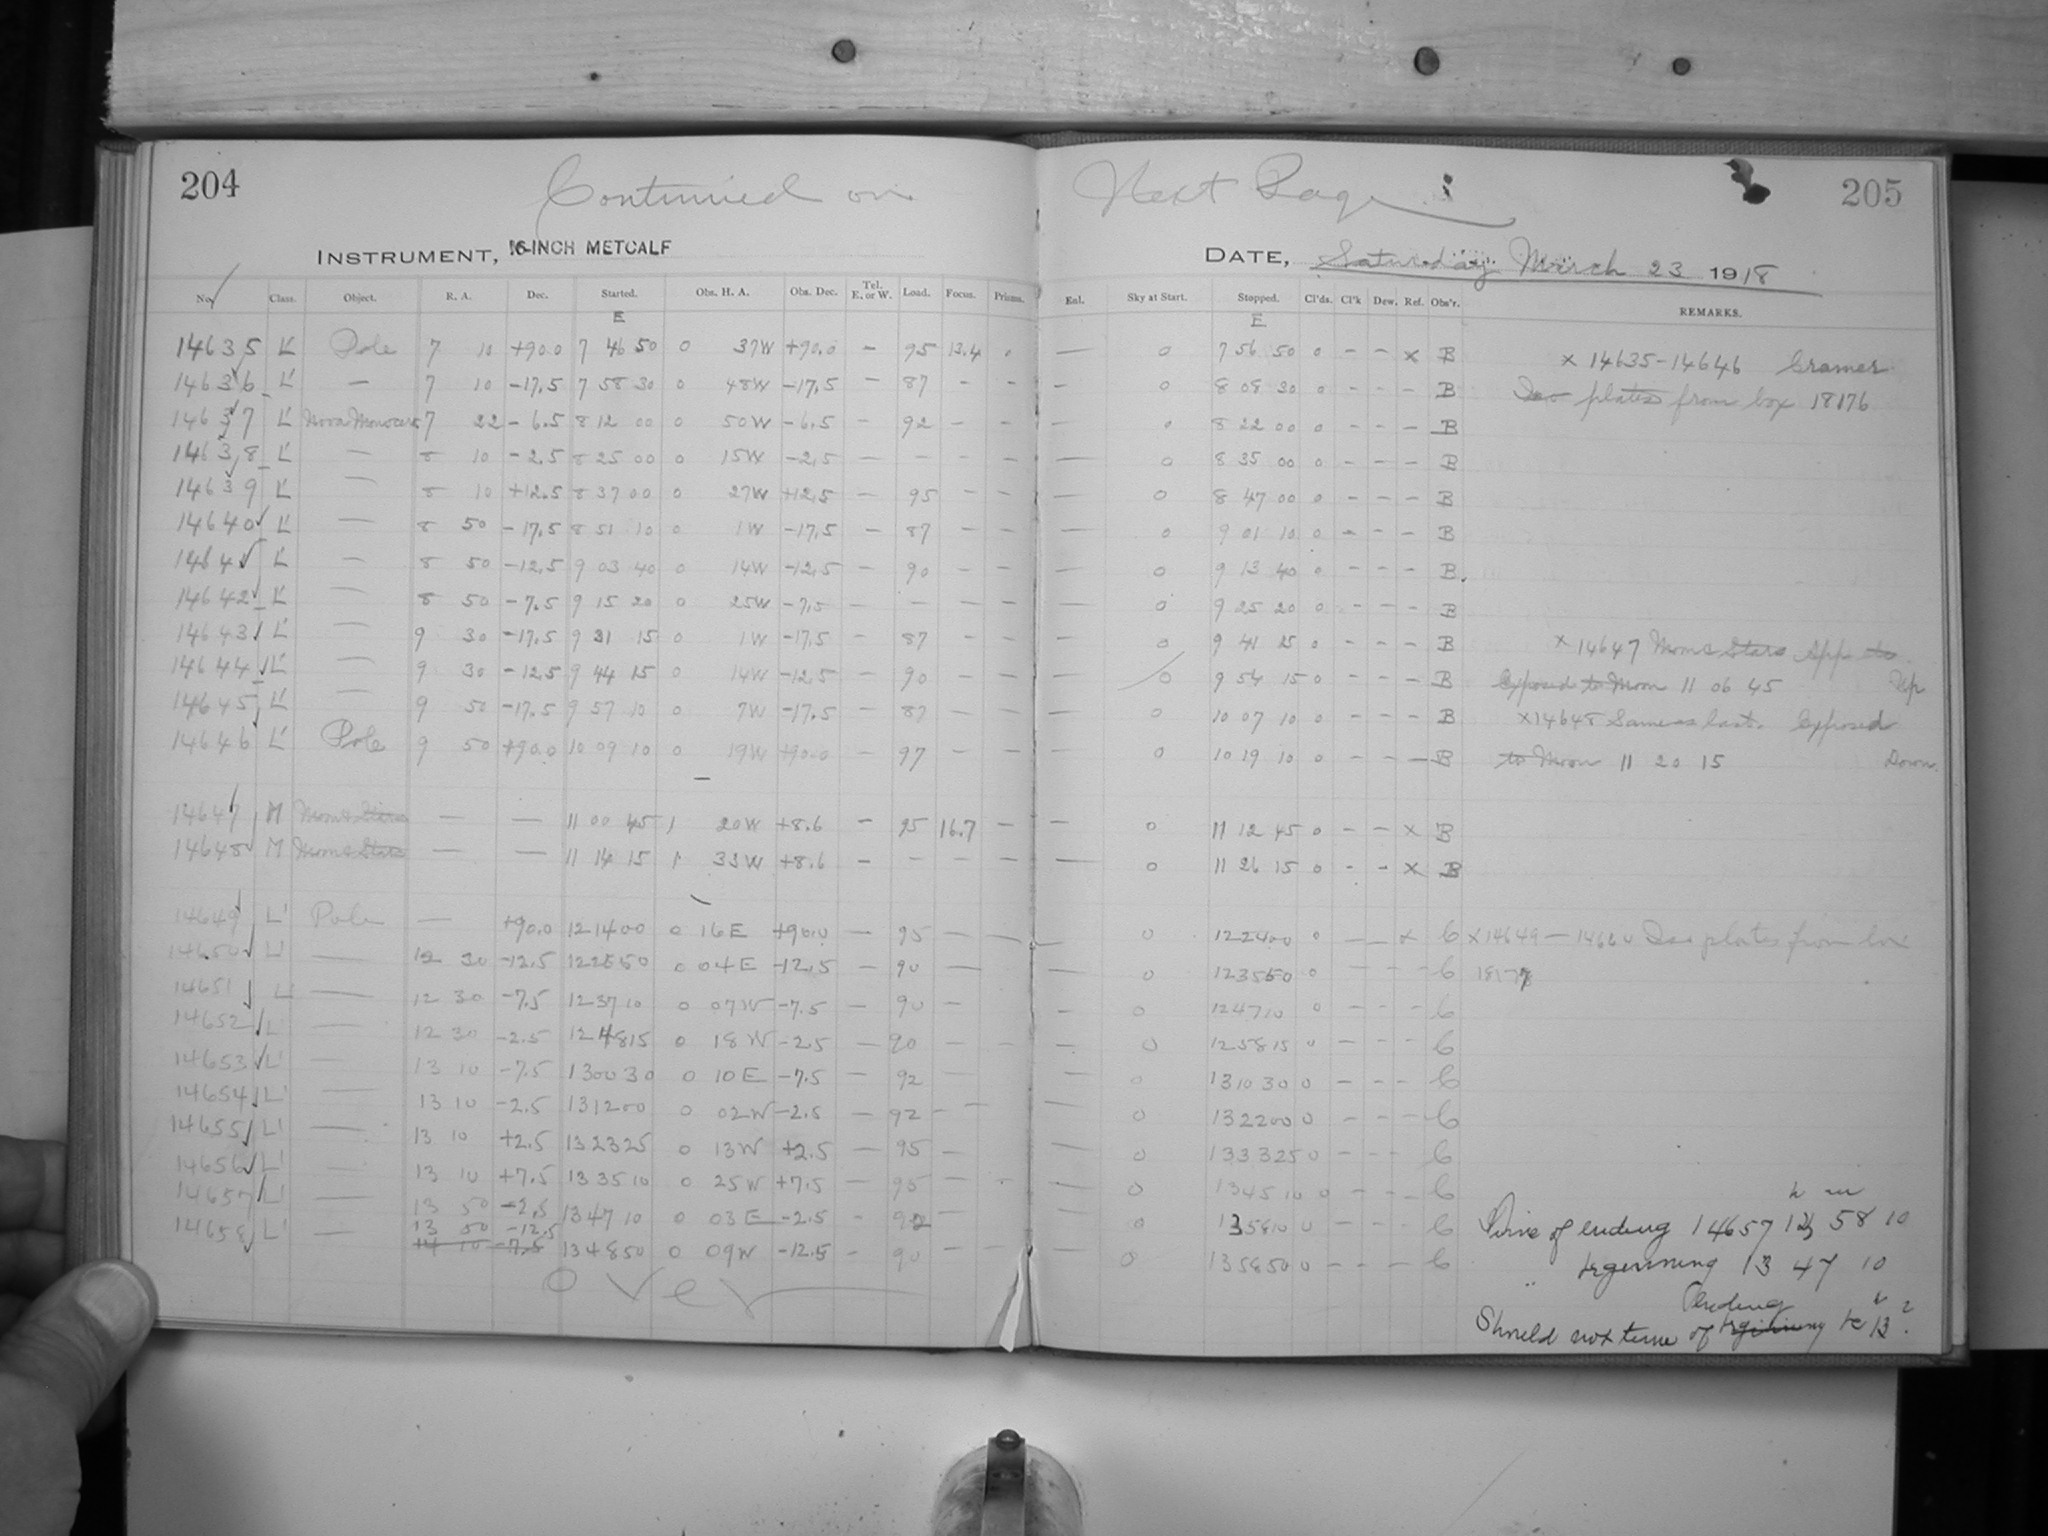 204
Continued on Next Page
205
INSTRUMENT, 16-INCH METCALF
DATE, Saturday March 23 1918
No. Class. Object. R. A. Dec. Started. Obs. H. A. Obs. Dec. Tel. E. or W. Load. Focus. Prisms. Enl. Sky at Start. Stopped. Cl'ds. Cl'k Dew. Ref. Obs'r. REMARKS.
E E
14635 L' Pole 7 10 +90.0 7 46 50 0 37W +90.0 — 95 13.4 0 — 0 7 56 50 0 - - x B x 14635-14646 Cramer
14636 L' — 7 10 -17.5 7 58 30 0 48W -17.5 — 87 - - - 0 8 08 30 0 - - - B Iso plates from box 18176
14637 L' Nova Monoceros 7 22 -6.5 8 12 00 0 50W -6.5 — 92 - - — 0 8 22 00 0 - - - B
14638 L' — 8 10 -2.5 8 25 00 0 15W -2.5 — — - — — 0 8 35 00 0 - - - B
14639 L' — 8 10 +12.5 8 37 00 0 27W +12.5 — 95 - - — 0 8 47 00 0 - - - B
14640 L' — 8 50 -17.5 8 51 10 0 1W -17.5 — 87 - - — 0 9 01 10 0 - - - B
14641 L' — 8 50 -12.5 9 03 40 0 14W -12.5 — 90 - - — 0 9 13 40 0 - - - B
14642 L' — 8 50 -7.5 9 15 20 0 25W -7.5 — — — — — 0 9 25 20 0 - - - B
14643 L' — 9 30 -17.5 9 31 15 0 1W -17.5 — 87 - - — 0 9 41 15 0 - - - B x 14647 Moon & Stars App to
14644 L' — 9 30 -12.5 9 44 15 0 14W -12.5 — 90 - - 0 9 54 15 0 - - - B Exposed to Moon 11 06 45 Up
14645 L' — 9 50 -17.5 9 57 10 0 7W -17.5 — 87 - - — 0 10 07 10 0 - - - B x14648 Same as last. Exposed
14646 L' Pole 9 50 +90.0 10 09 10 0 19W +90.0 — 97 - - — 0 10 19 10 0 - - — B to Moon 11 20 15 Down.
14647 M Moon & Stars — — 11 00 45 1 20W +8.6 - 95 16.7 — — 0 11 12 45 0 - - x B
14648 M Moon & Stars — — 11 14 15 1 33W +8.6 - - - — — 0 11 26 15 0 - - x B
14649 L' Pole — +90.0 12 14 00 0 16E +90.0 — 95 — — 0 12 24 00 0 — — x C x14649 — 14660 Iso plates from box
14650 L' — 12 30 -12.5 12 25 50 0 04E -12.5 — 90 — — 0 12 35 50 0 - - - C 18177
14651 L' — 12 30 -7.5 12 37 10 0 07W -7.5 — 90 - — 0 12 47 10 0 - - C
14652 L' — 12 30 -2.5 12 48 15 0 18W -2.5 — 90 - - — 0 12 58 15 0 - - - C
14653 L' — 13 10 -7.5 13 00 30 0 10E -7.5 — 92 — 0 13 10 30 0 - - - C
14654 L' — 13 10 -2.5 13 12 00 0 02W -2.5 — 92 - - — 0 13 22 00 0 - - - C
14655 L' — 13 10 +2.5 13 23 25 0 13W +2.5 — 95 - — 0 13 33 25 0 - - - C
14656 L' — 13 10 +7.5 13 35 10 0 25W +7.5 — 95 - - — 0 13 45 10 0 - - - C
h m
14657 L' — 13 50 -2.5 13 47 10 0 03E -2.5 - 92 — 0 13 58 10 0 C Time of ending 14657 12 58 10
14658 L' — 13 50 -12.5 13 48 50 0 09W -12.5 - 90 - - — 0 13 58 50 0 - - - C " beginning 13 47 10
14 10 -7.5
over
ending
Should not time of beginning be 13?